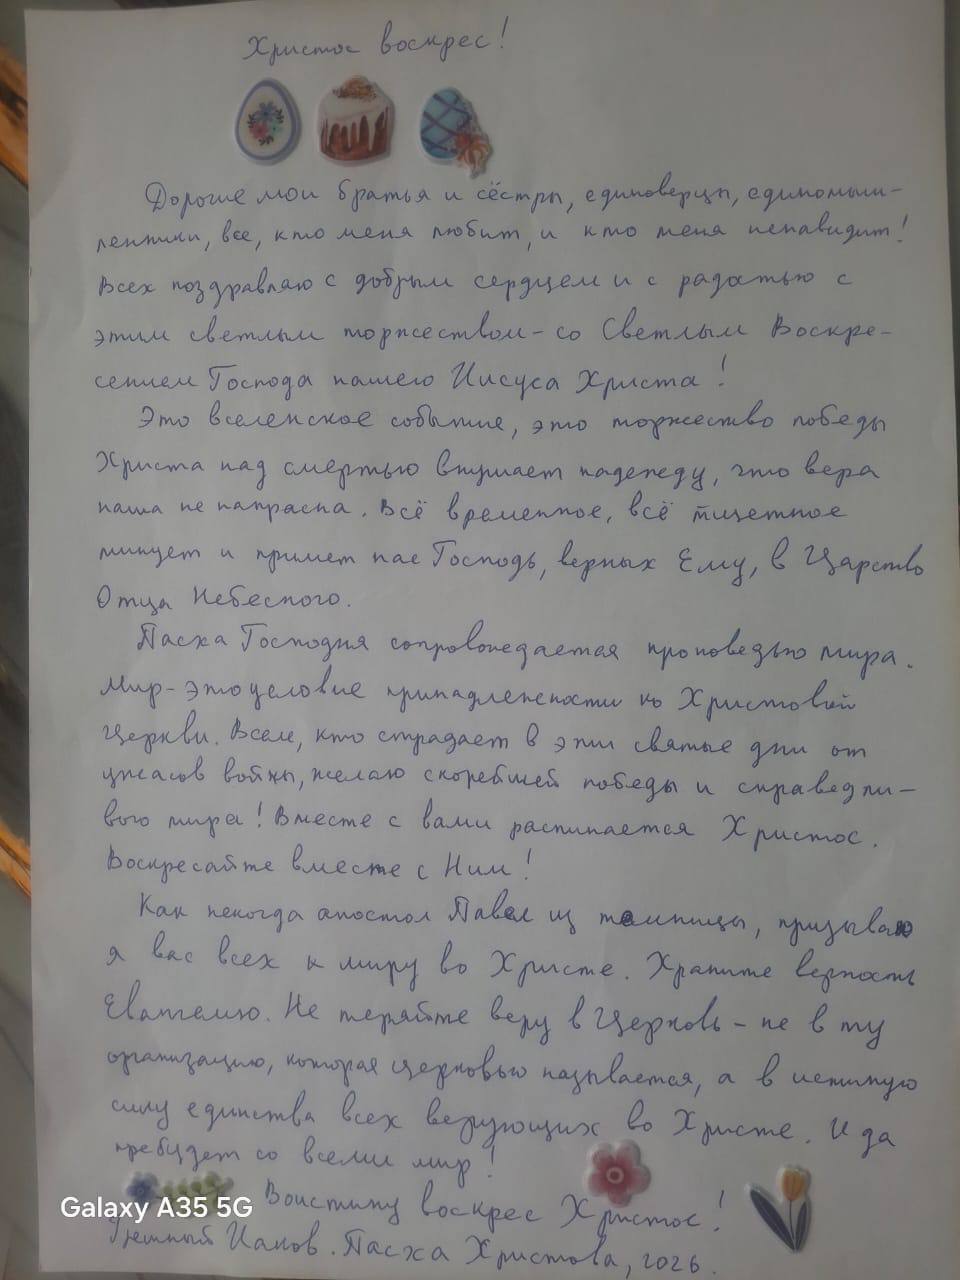 Христос воскрес!
Дорогие мои братья и сёстры, единоверцы, единомыш-
ленники, все, кто меня любит, и кто меня ненавидит!
Всех поздравляю с добрым сердцем и с радостью с
этим светлым торжеством - со Светлым Воскре-
сением Господа нашего Иисуса Христа!
Это вселенское событие, это торжество победы
Христа над смертью внушает надежду, что вера
наша не напрасна. Всё временное, всё тщетное
минует и примет нас Господь, верных Ему, в Царство
Отца Небесного.
Пасха Господня сопровождается проповедью мира.
Мир - это условие принадлежности ко Христовой
Церкви. Всем, кто страдает в эти святые дни от
ужасов войны, желаю скорейшей победы и справедли-
вого мира! Вместе с вами распинается Христос.
Воскресайте вместе с Ним!
Как некогда апостол Павел из темницы, призываю
я вас всех к миру во Христе. Храните верность
Евангелию. Не теряйте веру в Церковь - не в ту
организацию, которая церковью называется, а в истинную
силу единства всех верующих во Христе. И да
пребудет со всеми мир!
Воистину воскрес Христос!
Грешный Иаков. Пасха Христова, 2026.
Galaxy A35 5G